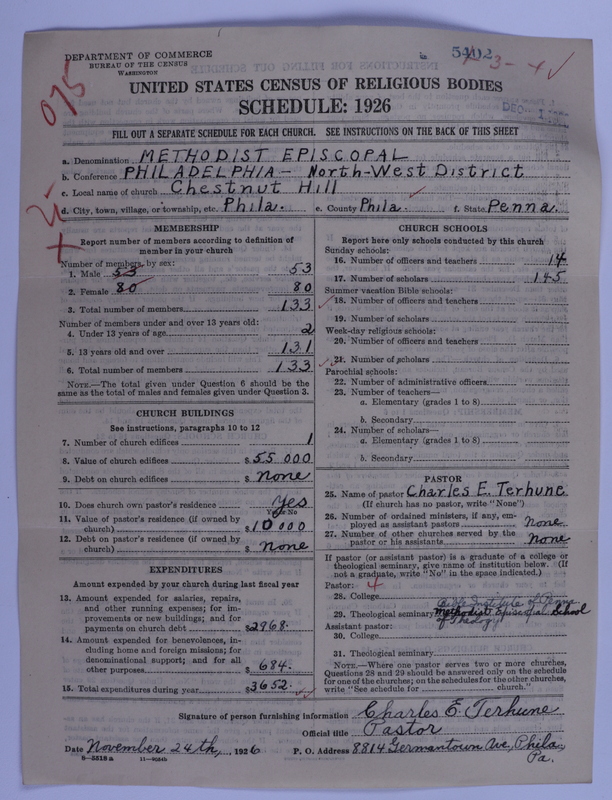 DEPARTMENT OF COMMERCE
BUREAU OF THE CENSUS
WASHINGTON
5402
3 - 4 ✓
075
DEC 1
UNITED STATES CENSUS OF RELIGIOUS BODIES
SCHEDULE: 1926
FILL OUT A SEPARATE SCHEDULE FOR EACH CHURCH. SEE INSTRUCTIONS ON THE BACK OF THIS SHEET
a. Denomination METHODIST EPISCOPAL
b. Conference PHILADELPHIA - North-West District
c. Local name of church Chestnut Hill
d. City, town, village, or township, etc. Phila. e. County Phila. f. State Penna.
MEMBERSHIP
Report number of members according to definition of
member in your church
Number of members, by sex:
1. Male 53 53
2. Female 80 80
3. Total number of members 133
Number of members under and over 13 years old:
4. Under 13 years of age 2
5. 13 years old and over 131
6. Total number of members 133
NOTE.—The total given under Question 6 should be the
same as the total of males and females given under Question 3.
CHURCH BUILDINGS
See instructions, paragraphs 10 to 12
7. Number of church edifices 1
8. Value of church edifices $55000
9. Debt on church edifices $ none
10. Does church own pastor's residence Yes
Yes or No
11. Value of pastor's residence (if owned by
church) $10000
12. Debt on pastor's residence (if owned by
church) $ none
EXPENDITURES
Amount expended by your church during last fiscal year
13. Amount expended for salaries, repairs,
and other running expenses; for im-
provements or new buildings; and for
payments on church debt $2968.
14. Amount expended for benevolences, in-
cluding home and foreign missions; for
denominational support; and for all
other purposes $684.
15. Total expenditures during year $3652.
CHURCH SCHOOLS
Report here only schools conducted by this church
Sunday schools:
16. Number of officers and teachers 14
17. Number of scholars 145
Summer vacation Bible schools:
18. Number of officers and teachers
19. Number of scholars
Week-day religious schools:
20. Number of officers and teachers
21. Number of scholars
Parochial schools:
22. Number of administrative officers
23. Number of teachers—
a. Elementary (grades 1 to 8)
b. Secondary
24. Number of scholars—
a. Elementary (grades 1 to 8)
b. Secondary
PASTOR
25. Name of pastor Charles E. Terhune
(If church has no pastor, write "None")
26. Number of ordained ministers, if any, em-
ployed as assistant pastors None
27. Number of other churches served by the
pastor or his assistants None
If pastor (or assistant pastor) is a graduate of a college or
theological seminary, give name of institution below. (If
not a graduate, write "No" in the space indicated.)
Pastor: 4
28. College
Bible Institute of Penna
29. Theological seminary Methodist Episcopal School
of Theology
Assistant pastor:
30. College
31. Theological seminary
NOTE.—Where one pastor serves two or more churches,
Questions 28 and 29 should be answered only on the schedule
for one of the churches; on the schedules for the other churches,
write "See schedule for church."
Signature of person furnishing information Charles E. Terhune
Official title Pastor
Date November 24th, 1926 P. O. Address 8814 Germantown Ave, Phila.
Pa.
8—5518a